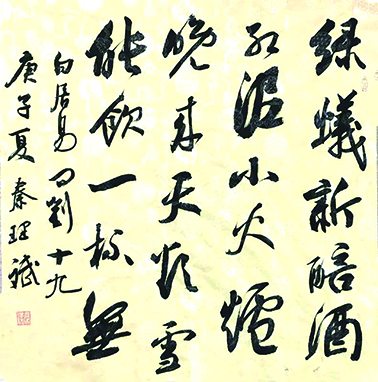 绿蟻新醅酒
红泥小火爐
晚来天欲雪
能飲一杯無
白居易问劉十九
庚子夏秦理斌